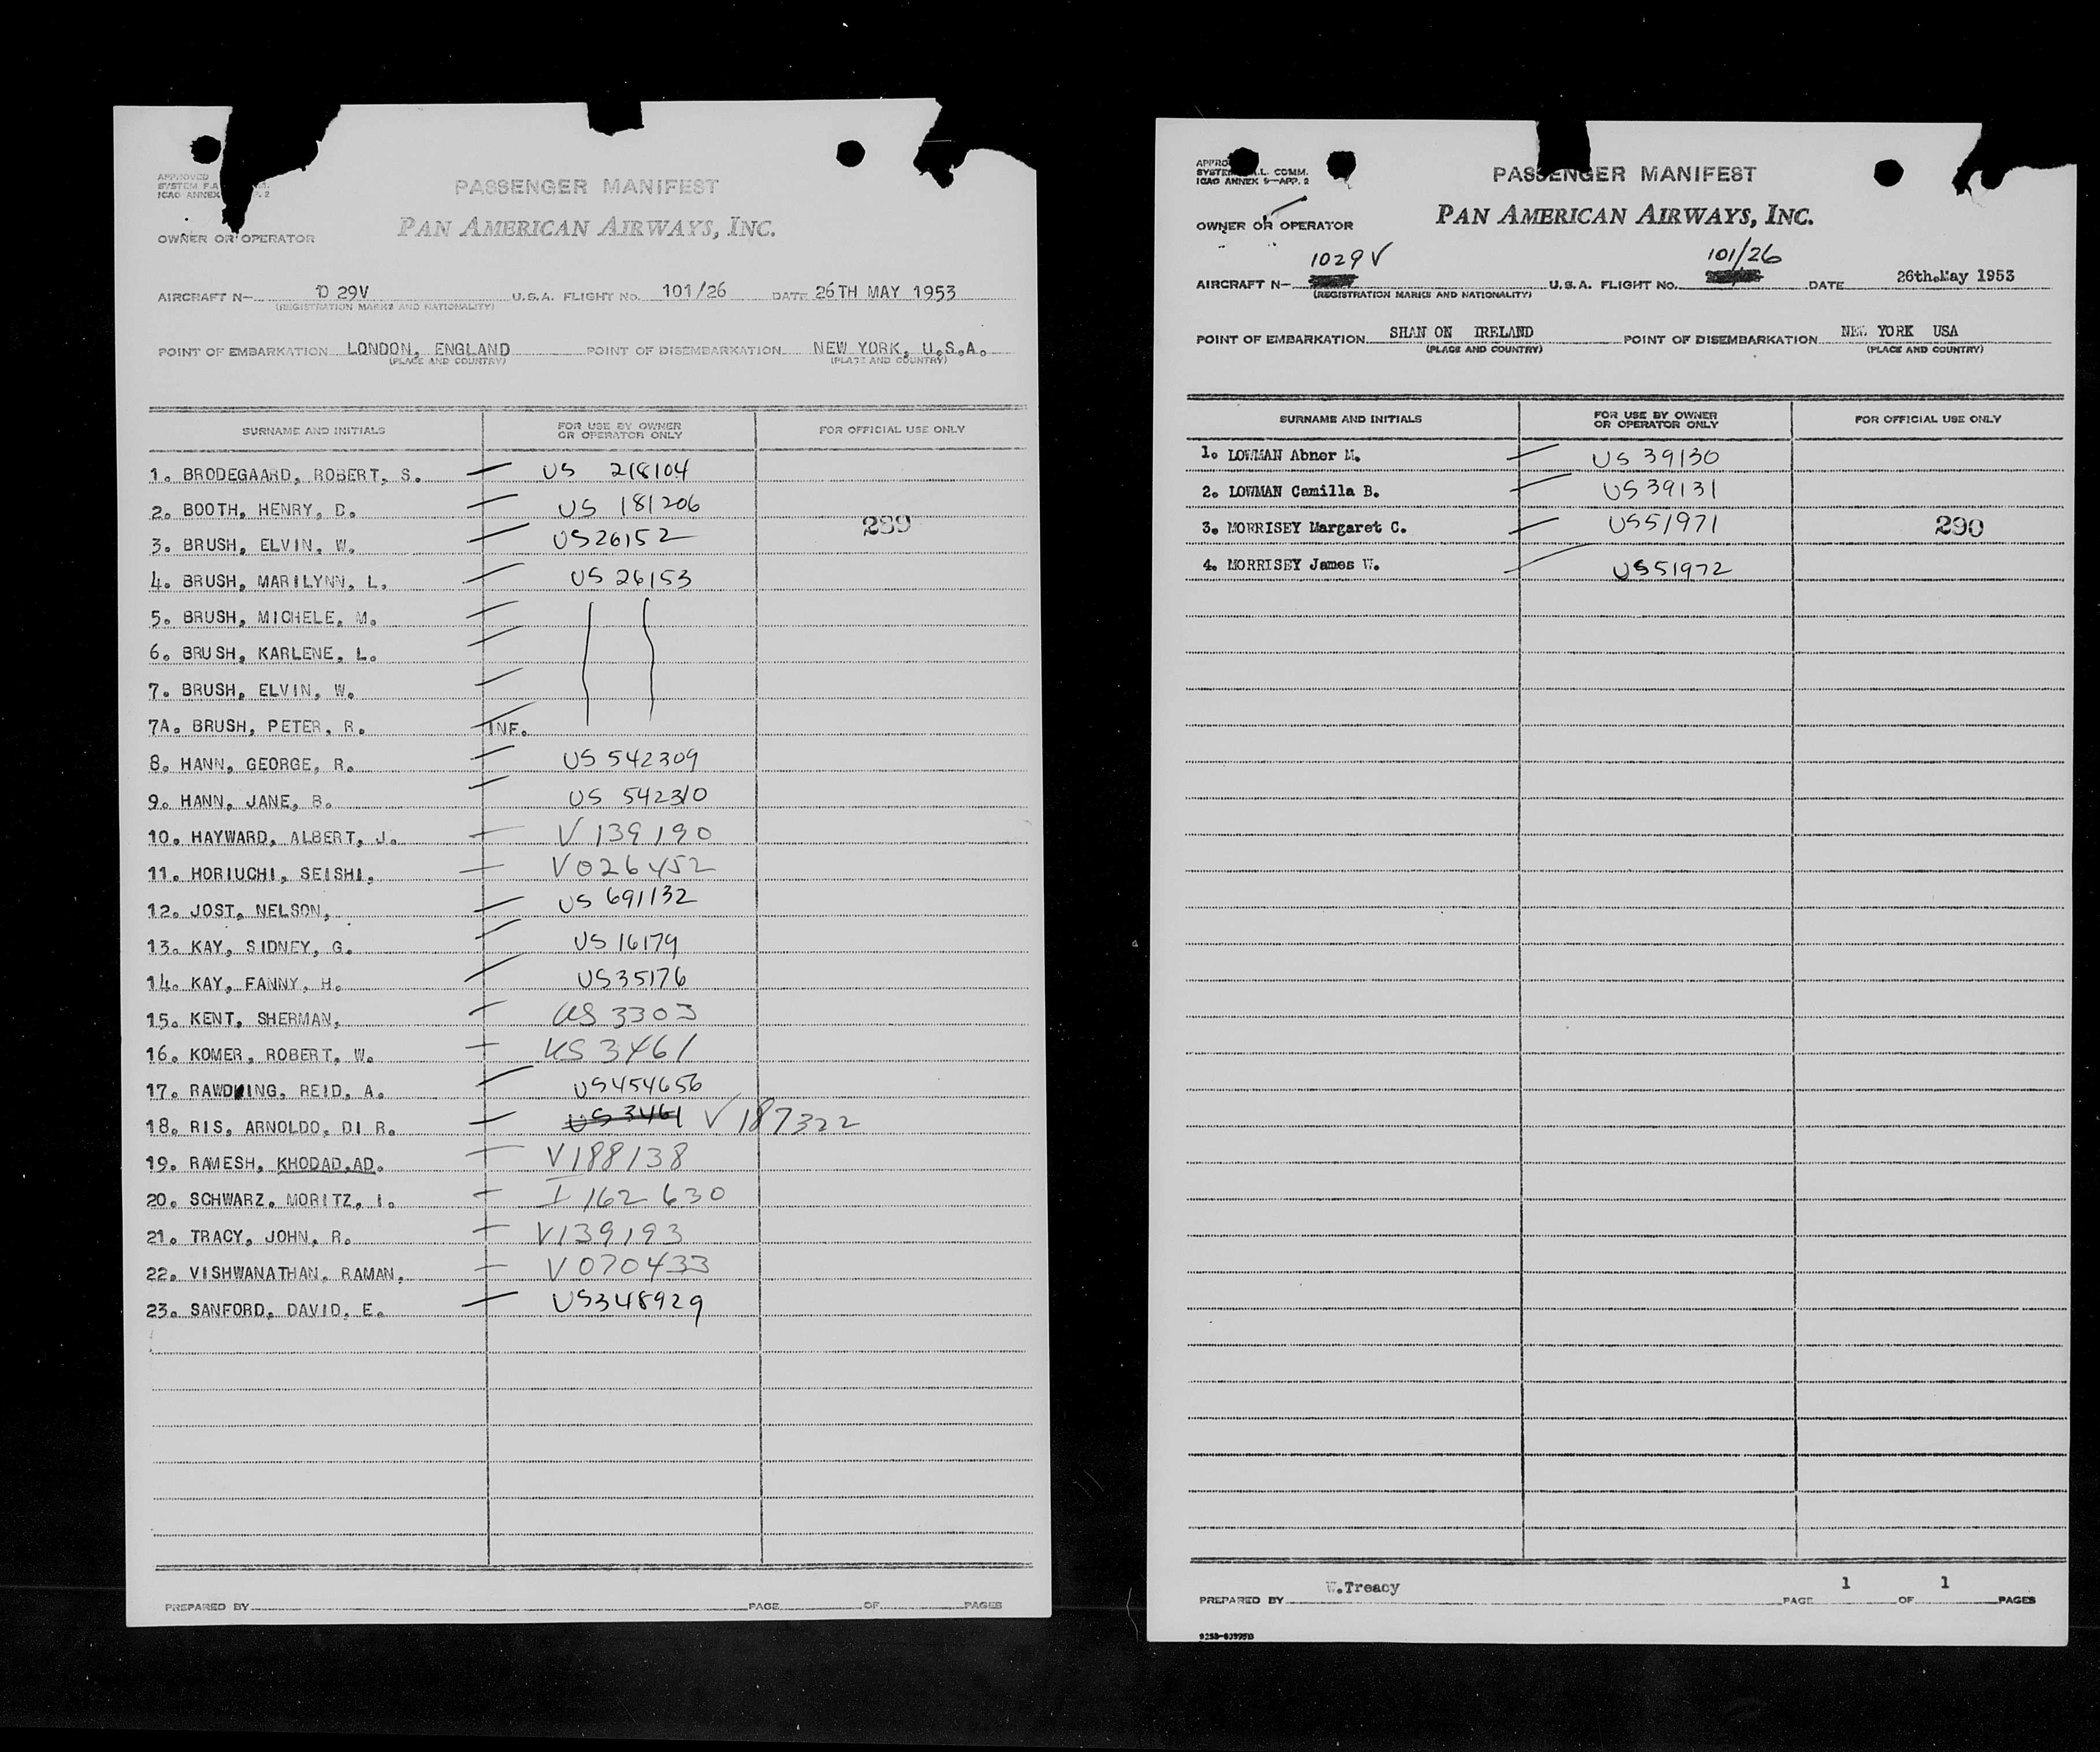 APPROVED
SYSTEM F.A M.
ICAO ANNEX P. 2
PASSENGER MANIFEST
PAN AMERICAN AIRWAYS, INC.
OWNER OR OPERATOR
AIRCRAFT N— D 29V U.S.A. FLIGHT NO. 101/26 DATE 26TH MAY 1953
(REGISTRATION MARKS AND NATIONALITY)
POINT OF EMBARKATION LONDON, ENGLAND POINT OF DISEMBARKATION NEW YORK, U.S.A.
(PLACE AND COUNTRY) (PLACE AND COUNTRY)
SURNAME AND INITIALS FOR USE BY OWNER OR OPERATOR ONLY FOR OFFICIAL USE ONLY
1. BRODEGAARD, ROBERT, S. US 218104
2. BOOTH, HENRY, D. US 181206
289
3. BRUSH, ELVIN, W. US26152
4. BRUSH, MARILYNN, L. US 26153
5. BRUSH, MICHELE, M.
6. BRUSH, KARLENE, L.
7. BRUSH, ELVIN, W.
7A. BRUSH, PETER, R. INF.
8. HANN, GEORGE, R. US 542309
9. HANN, JANE, B. US 542310
10. HAYWARD, ALBERT, J. V 139190
11. HORIUCHI, SEISHI, V026452
12. JOST, NELSON, US 691132
13. KAY, SIDNEY, G. US 16179
14. KAY, FANNY, H. US35176
15. KENT, SHERMAN, US 3303
16. KOMER, ROBERT, W. US 3461
17. RAWDING, REID, A. US454656
18. RIS, ARNOLDO, DI R. US 3461 V 187322
19. RAMESH, KHODAD,AD. V188138
20. SCHWARZ, MORITZ, I. I 162 630
21. TRACY, JOHN, R. V139193
22. VISHWANATHAN, RAMAN, V070433
23. SANFORD, DAVID, E. US348929
PREPARED BY PAGE OF PAGES
APPRO
SYSTE .L. COMM.
ICAO ANNEX 9—APP. 2
PASSENGER MANIFEST
PAN AMERICAN AIRWAYS, INC.
OWNER OR OPERATOR
1029V 101/26
AIRCRAFT N— U.S.A. FLIGHT NO. DATE 26th.May 1953
(REGISTRATION MARKS AND NATIONALITY)
POINT OF EMBARKATION SHAN ON IRELAND POINT OF DISEMBARKATION NEW YORK USA
(PLACE AND COUNTRY) (PLACE AND COUNTRY)
SURNAME AND INITIALS FOR USE BY OWNER OR OPERATOR ONLY FOR OFFICIAL USE ONLY
1. LOWMAN Abner M. US 39130
2. LOWMAN Camilla B. US 39131
3. MORRISEY Margaret C. US51971 290
4. MORRISEY James W. US51972
W.Treacy 1 1
PREPARED BY PAGE OF PAGES